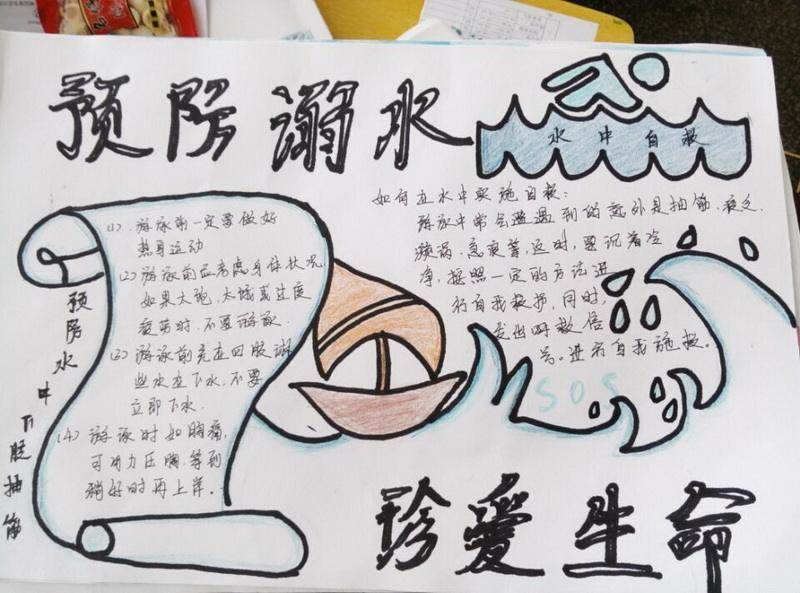 预防溺水
水中自救
如何在水中实施自救:
游泳中常会遭遇到的意外是抽筋、疲乏、
漩涡、急浪等,这时,要沉着冷
净,按照一定的方法进
行自我救护,同时,
发出呼救信
号。进行自我施救。
SOS
预防水中下肢抽筋
(1)、游泳前一定要做好
热身运动
(2)游泳前应考虑身体状况,
如果太饱、太饿或过度
疲劳时,不要游泳.
(3)游泳前先在四肢淋
些水在下水,不要
立即下水.
(4)游泳时如胸痛,
可用力压胸,等到
稍好时再上岸。
珍爱生命